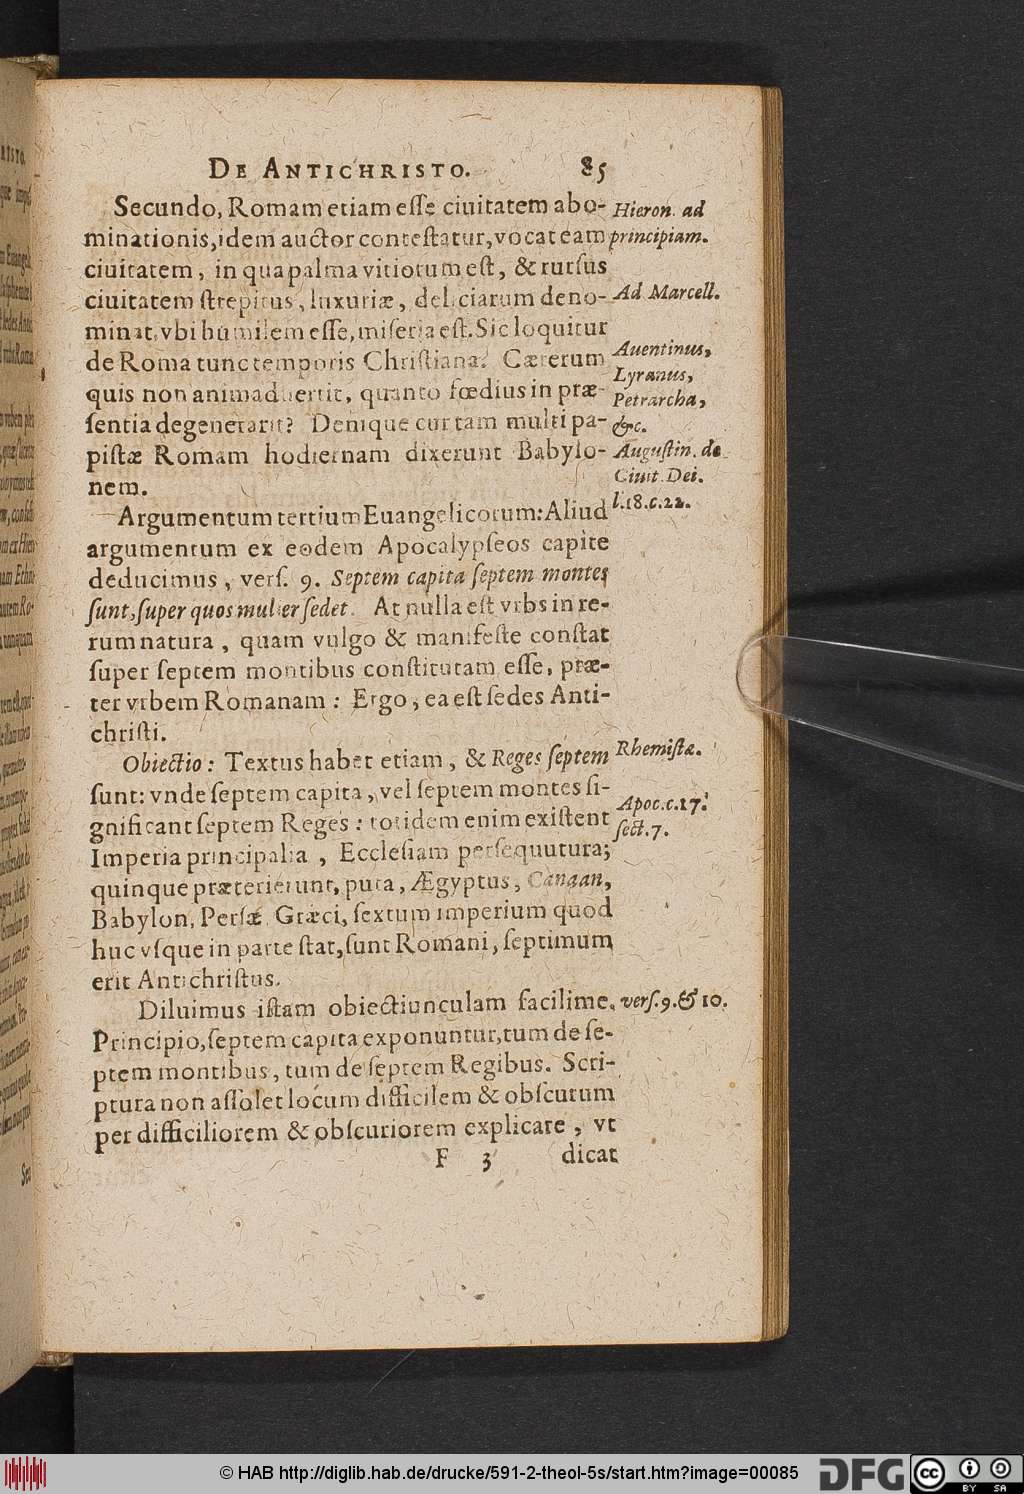 DE ANTICHRISTO. 85
Secundo, Romam etiam eſſe ciuitatem abo-
minationis, idem auctor conteſtatur, vocat eam
ciuitatem, in qua palma vitiorum eſt, & rurſus
ciuitatem ſtrepitus, luxuriæ, deliciarum deno-
minat, vbi humilem eſſe, miſeria eſt. Sic loquitur
de Roma tunc temporis Chriſtiana. Cæterum
quis non animaduertit, quanto fœdius in præ-
ſentia degenerarit? Denique cur tam multi pa-
piſtæ Romam hodiernam dixerunt Babylo-
nem.
Hieron. ad
principiam.
Ad Marcell.
Auentinus,
Lyranus,
Petrarcha,
&c.
Auguſtin. de
Ciuit. Dei.
l.18.c.22.
Argumentum tertium Euangelicorum: Aliud
argumentum ex eodem Apocalypſeos capite
deducimus, verſ. 9. Septem capita ſeptem montes
ſunt, ſuper quos mulier ſedet. At nulla eſt vrbs in re-
rum natura, quam vulgo & manifeſte conſtat
ſuper ſeptem montibus conſtitutam eſſe, præ-
ter vrbem Romanam: Ergo, ea eſt ſedes Anti-
chriſti.
Obiectio: Textus habet etiam, & Reges ſeptem
ſunt: vnde ſeptem capita, vel ſeptem montes ſi-
gnificant ſeptem Reges: totidem enim exiſtent
Imperia principalia, Eccleſiam perſequutura;
quinque præterierunt, puta, Ægyptus, Canaan,
Babylon, Perſæ, Græci, ſextum imperium quod
huc vſque in parte ſtat, ſunt Romani, ſeptimum
erit Antichriſtus.
Rhemiſtæ.
Apoc.c.17.
ſect.7.
Diluimus iſtam obiectiunculam facilime.
Principio, ſeptem capita exponuntur, tum de ſe-
ptem montibus, tum de ſeptem Regibus. Scri-
ptura non aſſolet locum difficilem & obſcurum
per difficiliorem & obſcuriorem explicare, vt
verſ.9.& 10.
F 3 dicat
© HAB http://diglib.hab.de/drucke/591-2-theol-5s/start.htm?image=00085
DFG
cc BY SA